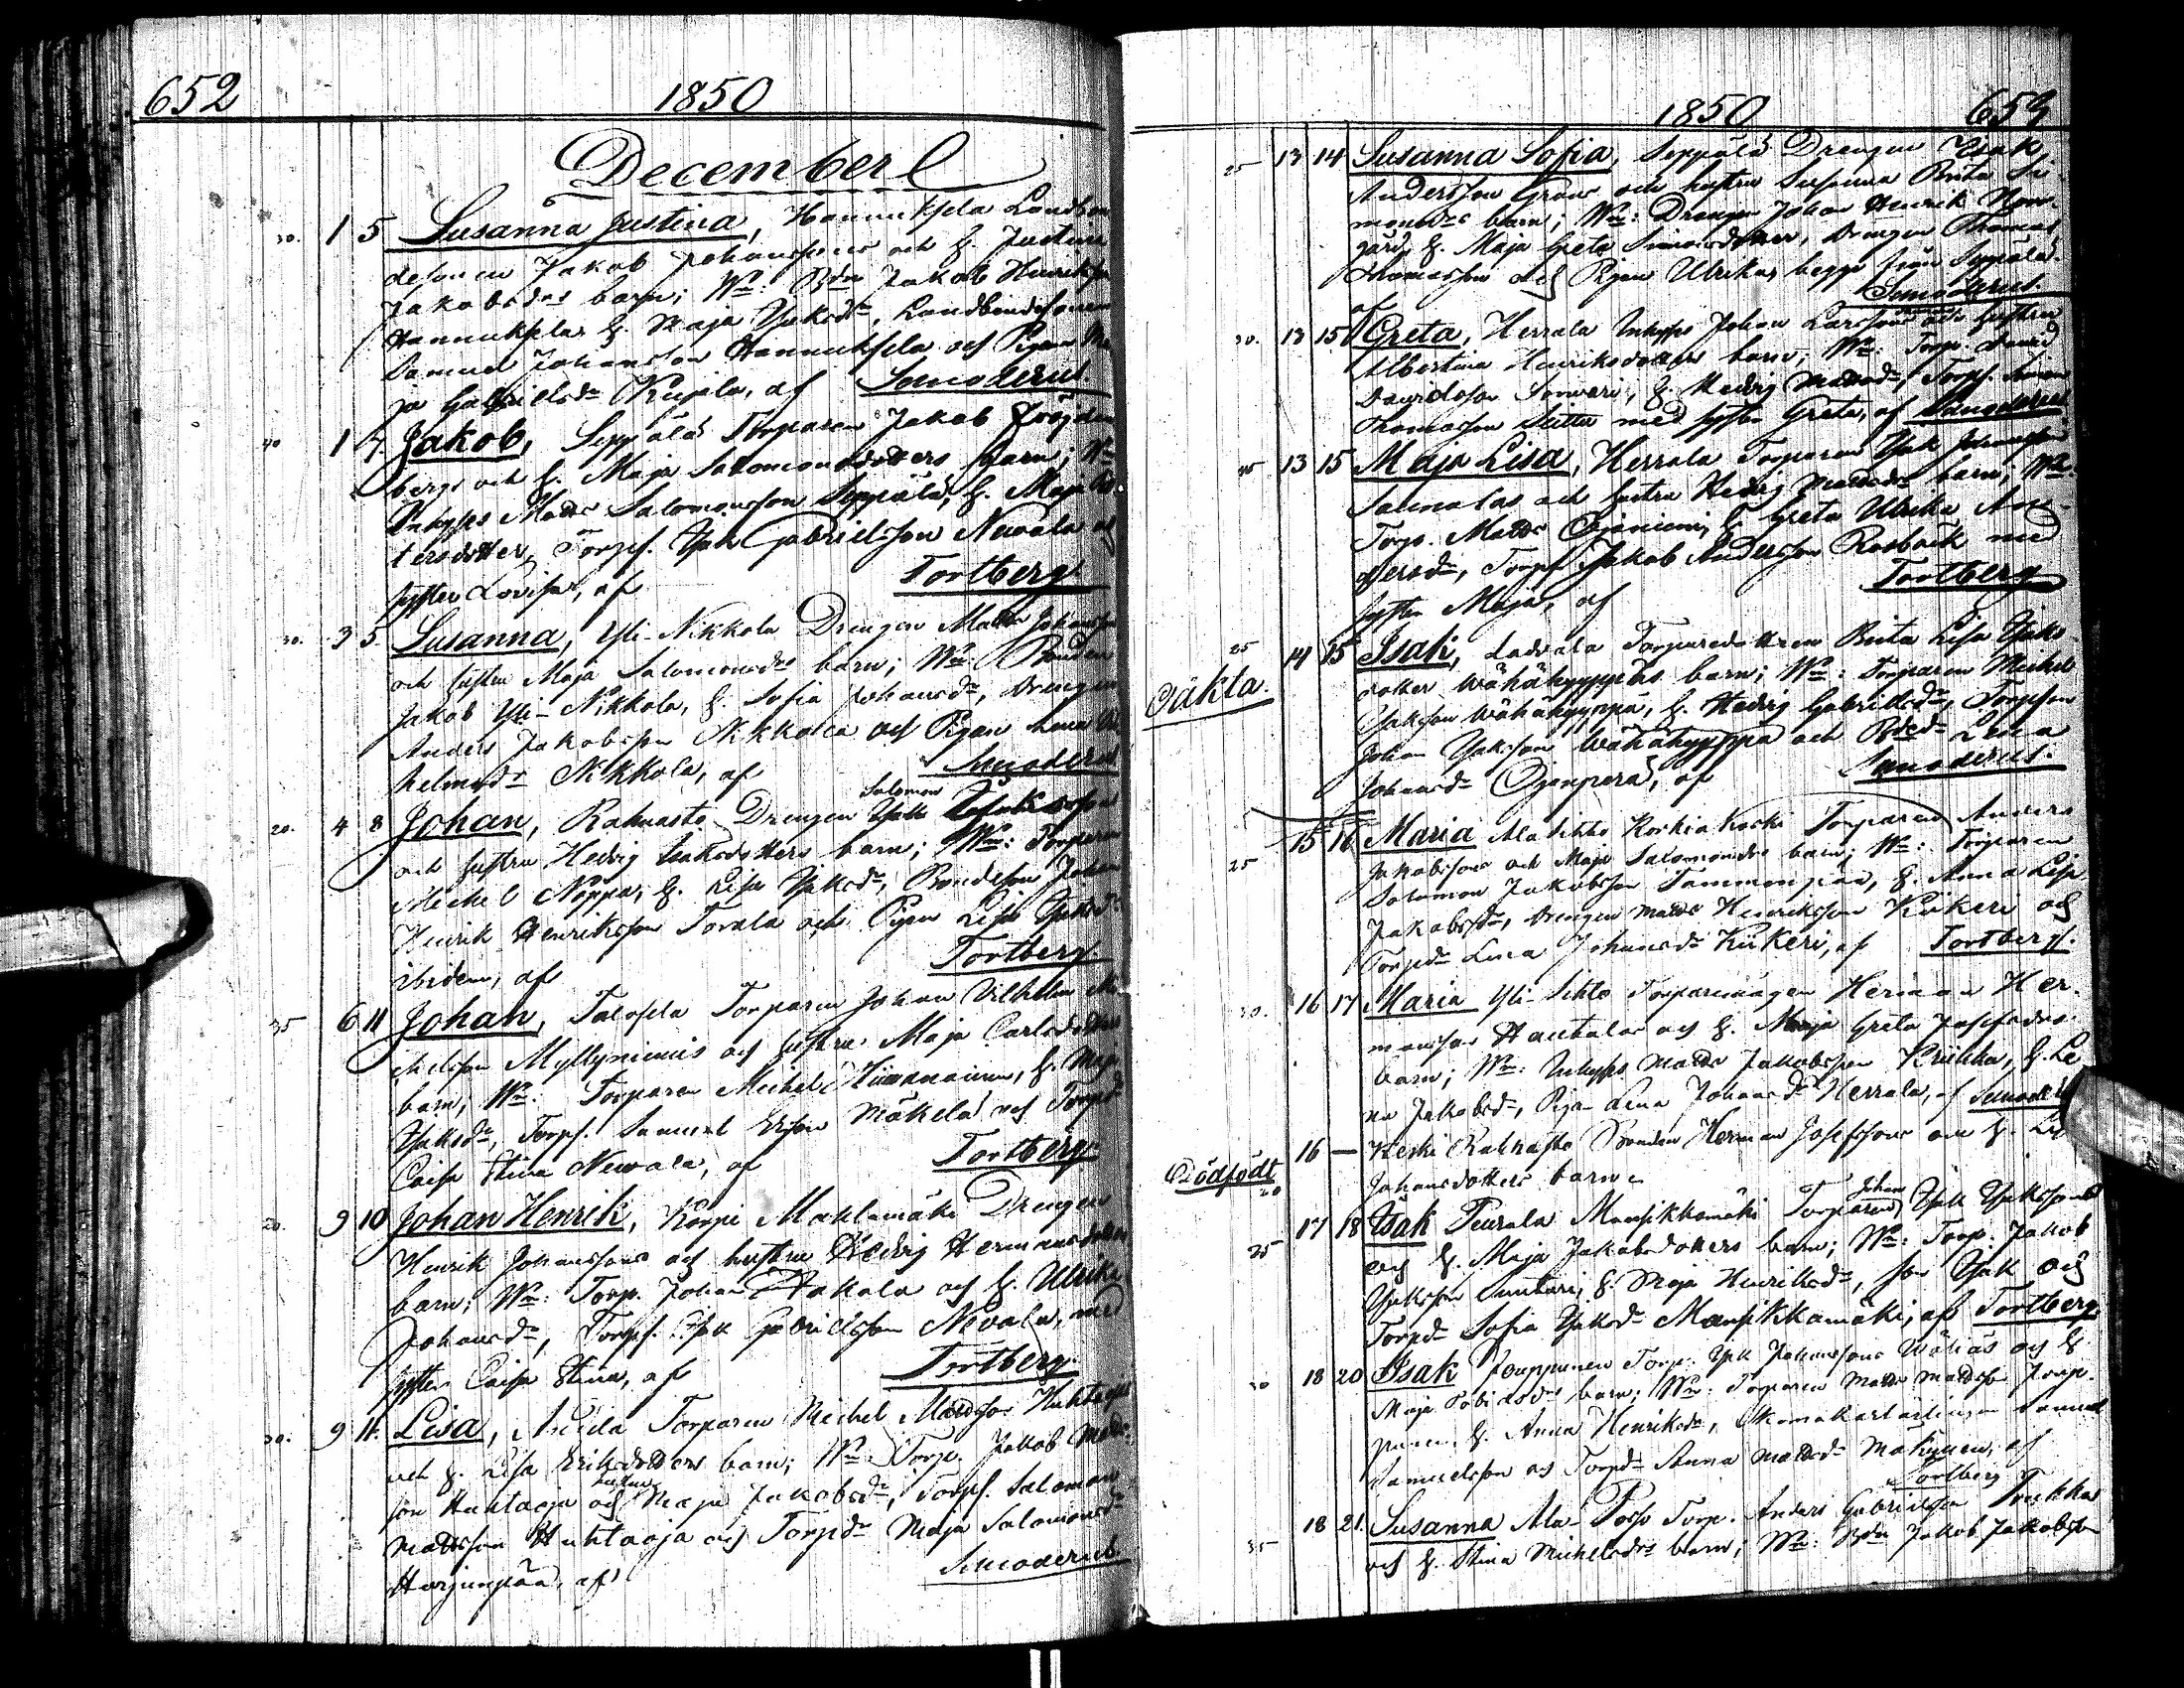 652 1850
December
30. 1 5 Susanna Justina, Hannuksela Landbon
desonen Jakob Johanssons och h. Justina
Jakobsdrs barn; Wn: Bdn Jakob Henriksson
Hannuksela, h. Maja Isaksdr, Landbondesonen
Samuel Johansson Hannuksela och Pigan Ma
ja Gabrielsdr Kujala, af Senoderus
40 1 7. Jakob, Seppälä Torparen Jakob Fröjdin
bergs och h. Maja Salomonsdotters barn; Wn
Inhyses Matts Salomonsson Seppälä, h. Maja
tersdotter, Torps. Isak Gabrielsson Newala och
syster Lovisa, af Tortberg
30. 3 5. Susanna, Yli-Nikkola Drengen Matts Johansson
och hustru Maja Salomonsdrs barn; Wn: Bonden
Jakob Yli-Nikkola, h. Sofia Johansdr, Drengen
Anders Jakobsson Nikkola och Pigan Lena Wil
helmsdr Nikkola, af Senoderus
Salomon
20. 4 8 Johan, Rahnasto Drengen Isak
och hustru Hedvig Isaksdotters barn; Wn: Torparen
Michel Noppa, h. Lisa Isaksdr, Bondeson Johan
Henrik Henriksson Torala och Pigan Lisa Isaksdr
ibidem, af Tortberg.
35 6 11 Johan, Talosela Torparen Johan Vilhelm Mi
chelsson Myllyniemis och hustru Maja Carlsdotters
barn; Wn: Torparen Michel, h. Maja
Isaksdr, Torps. Samuel Ersson Mäkelä och Torpd
Caisa Stina Newala, af Tortberg
20. 9 10 Johan Henrik, Korpi Maklamäki Drengen
Henrik Johanssons och hustru Hedvig Hermansdotters
barn; Wn: Torp. Johan Pakala och h. Ulrika
Johansdr, Torps. Isak Gabrielsson Nevala, med
syster Caisa Stina, af Tortberg.
30. 9 11. Lisa, Torparen Michel Mattsson Huhtaojas
och h. Lisa Eriksdotters barn; Wn: Torp. Jakob Matts
hustrun
son Huhtaoja och Maja Jakobsdr, Torps. Salomon
Mattsson Huhtaoja och Torpdr Maja Salomonsdr
Harjunpää, af Senoderus
1850 653
25 13 14 Susanna Sofia, Seppälä Drengen Isak
Andersson Grans och hustru Susanna Brita Si
monsdrs barn; Wn: Drengen Johan Henrik Norr
gård, h. Maja Greta Simonsdotter, Drengen Thomas
Thomasson och Pigan Ulrika, begge från Seppälä.
Senoderus.
30. 13 15 Greta, Herrala Inhyses Johan Larssons och hustru
Albertina Henriksdotters barn; Wn: Torp. David
Davidsson, h. Hedvig Mattsdr, Torps. Simon
Thomasson med syster Greta, af Senoderus
13 15 Maja Lisa, Herrala Torparen Isak Johansson
Salmelas och hustru Hedvig Mattsdrs barn; Wn:
Torp. Matts Ojaniemi, h. Greta Ulrika An
dersdr, Torps Jakob Andersson Rosback med
syster Maja, af Tortberg
25 14 15 Isak, Ladvala Torparedottren Brita Lisa Isaks
Oäkta.
dotter Wähähyyppäs barn; Wn: Torparen Michel
Isaksson Wähähyyppä, h. Hedvig Gabrielsdr, Torpson
Johan Isaksson Wähähyyppä och Bdedr Lena
Johansdr Ojanperä, af Senoderus.
25 15 16 Maria Ala Sihto Koskiakoski Torparen Anders
Jakobssons och Maja Salomonsdrs barn; Wn: Torparen
Salomon Jakobsson Tammenpää, h. Anna Lisa
Jakobsdr, Drengen Matts Henriksson Kiikeri och
Torpdr Lena Johansdr Kiikeri, af Tortberg.
30. 16 17 Maria Yli-Sihto Torparemågen Herman Her.
manssons Hautalas och h. Maja Greta Josefsdrs
barn; Wn: Inhyses Matts Jakobsson Krükka, h. Le
na Jakobsdr, Pigan Lena Johansdr Herrala, af Senoderus
16 — Keski Rahnasto Bonden Herman Josefssons och h. Lisa
Dödfödt
20
Johansdotters barn
Johan
25 17 18 Isak Peurala Mansikkamäki Torparen Isak Isakssons
och h. Maja Jakobsdotters barn; Wn: Torp. Jakob
Isaksson Luntari, h. Maja Henriksdr, son Isak och
Torpdr Sofia Isaksdr Mansikkamäki, af Tortberg
30 18 20 Isak Jouppinen Torp. Isak Johanssons och h.
Maja Tobiasdrs barn; Wn: Torparen Matts Mattsson Joup.
pinen, h. Anna Henriksdr, Skomakarlärlingen Samuel
Samuelsson och Torpdr Anna Mattsdr Mäkynen, af
Tortberg
35 18 21. Susanna Ala-Porso Torp. Anders Gabrielsson
och h. Stina Michelsdrs barn; Wn: Bdn Jakob Jakobsson